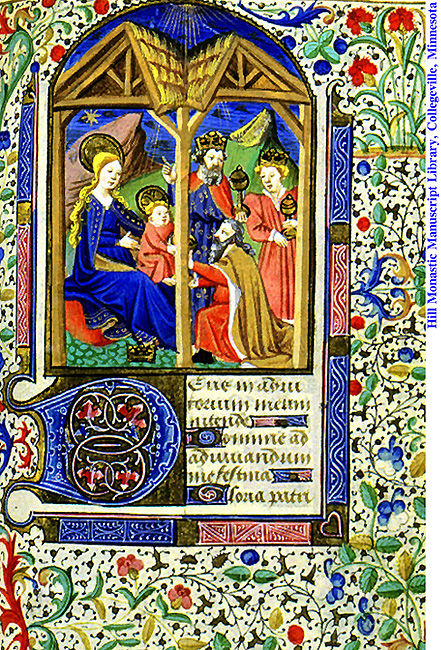 DEus in adiu
torium meum
intende
Domine ad
adiuuandum
me festina
Gloria patri
Hill Monastic Manuscript Library, Collegeville, Minnesota